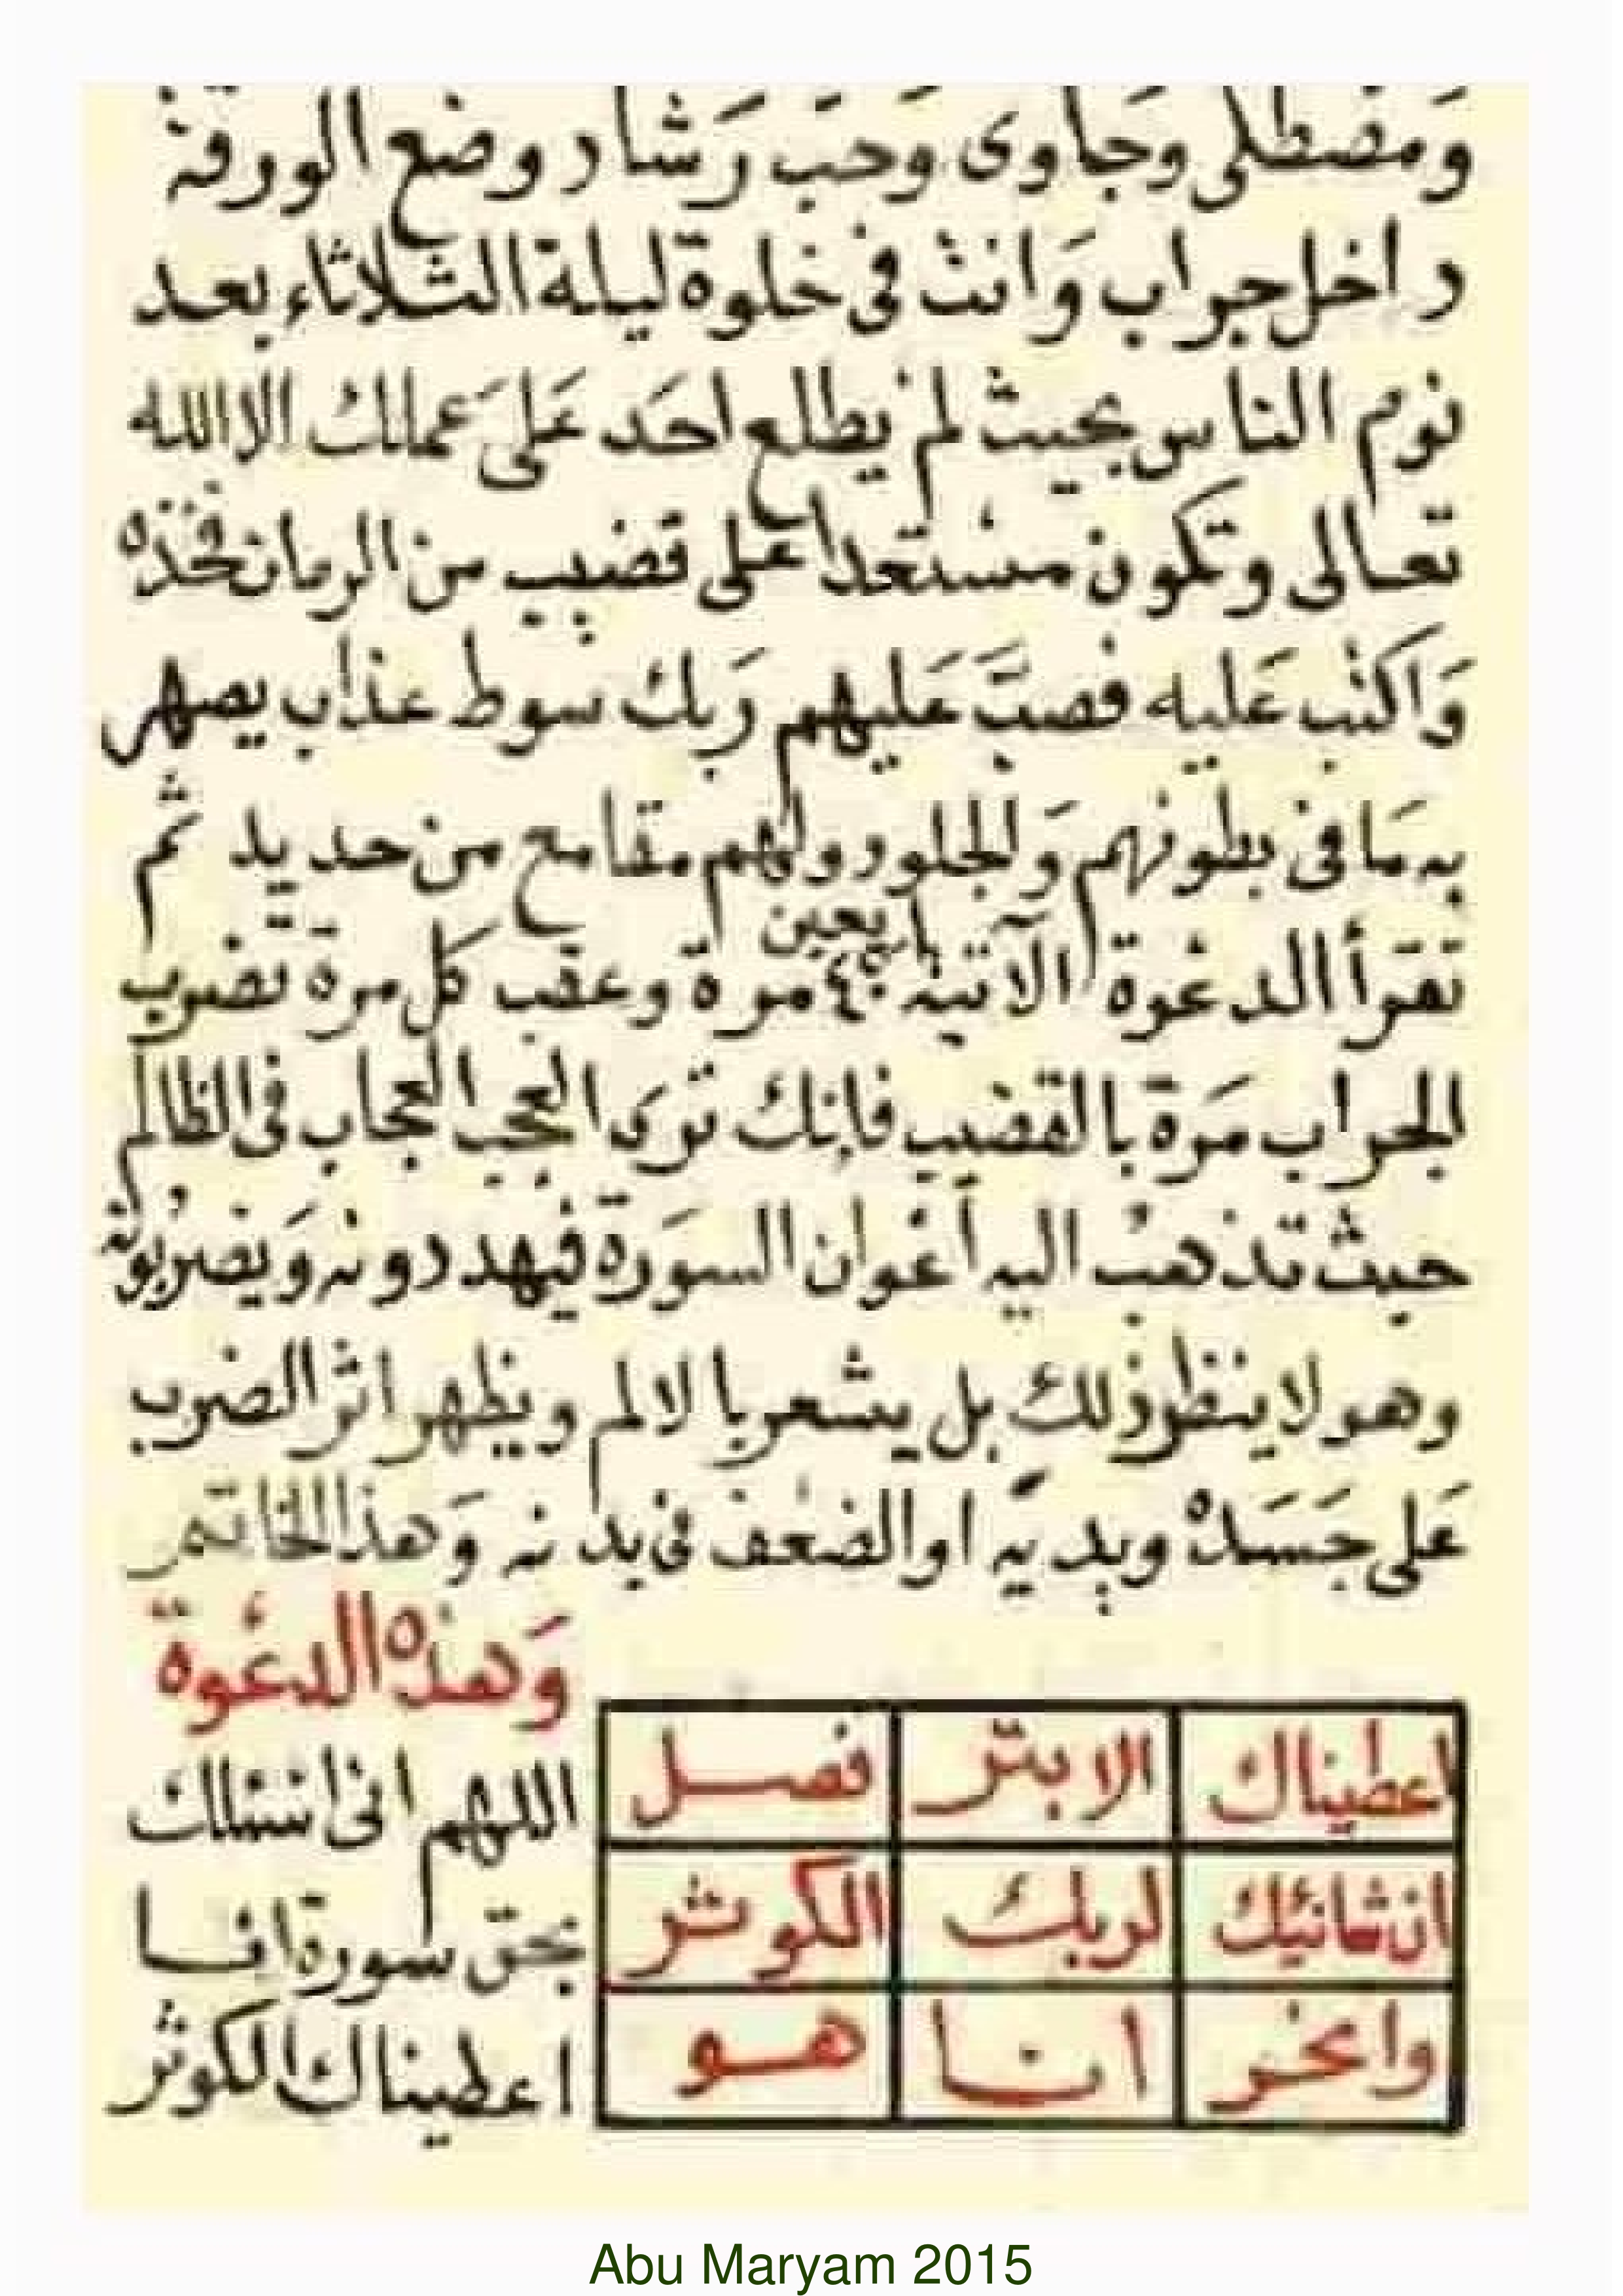 وَمصْطلى وَجَاوى وَحبّ رَشاد وضع الورقة
داخل جراب وَانت فى خلوة ليلة الثلاثاء بعد
نوم الناس بحيث لم يطلع احَد عَلى عَملك الا الله
تعالى وتكون مستعدا على قضيب من الرمان فخذه
وَاكتب عَليه فصبَّ عَليهم رَبك سوط عذاب يصهر
به مَا فى بطونهم وَالجلود ولهم مقامع من حديد ثم
تقرأ الدعوة الآتية ٤٥ مرة وعقب كل مرة تضرب
بأربعين
الجراب مَرة بالقضيب فإنك ترى العجب العجاب فى الظالم
حيث تذهبُ اليه أعوان السوَرة فيهددونه وَيضربُونه
وهو لا ينظر ذلك بل يشعر بالالم ويظهر اثر الضرب
عَلى جَسَده ويديه او الضعف فى بدنه وَهذا الخاتم
وَهذه الدعوة
اعطيناك الابتر فصل
انشانئك لربك الكوثر
وانحر انا هو
اللهم انى اسئلك
بحق سورة انا
اعطيناك الكوثر
Abu Maryam 2015